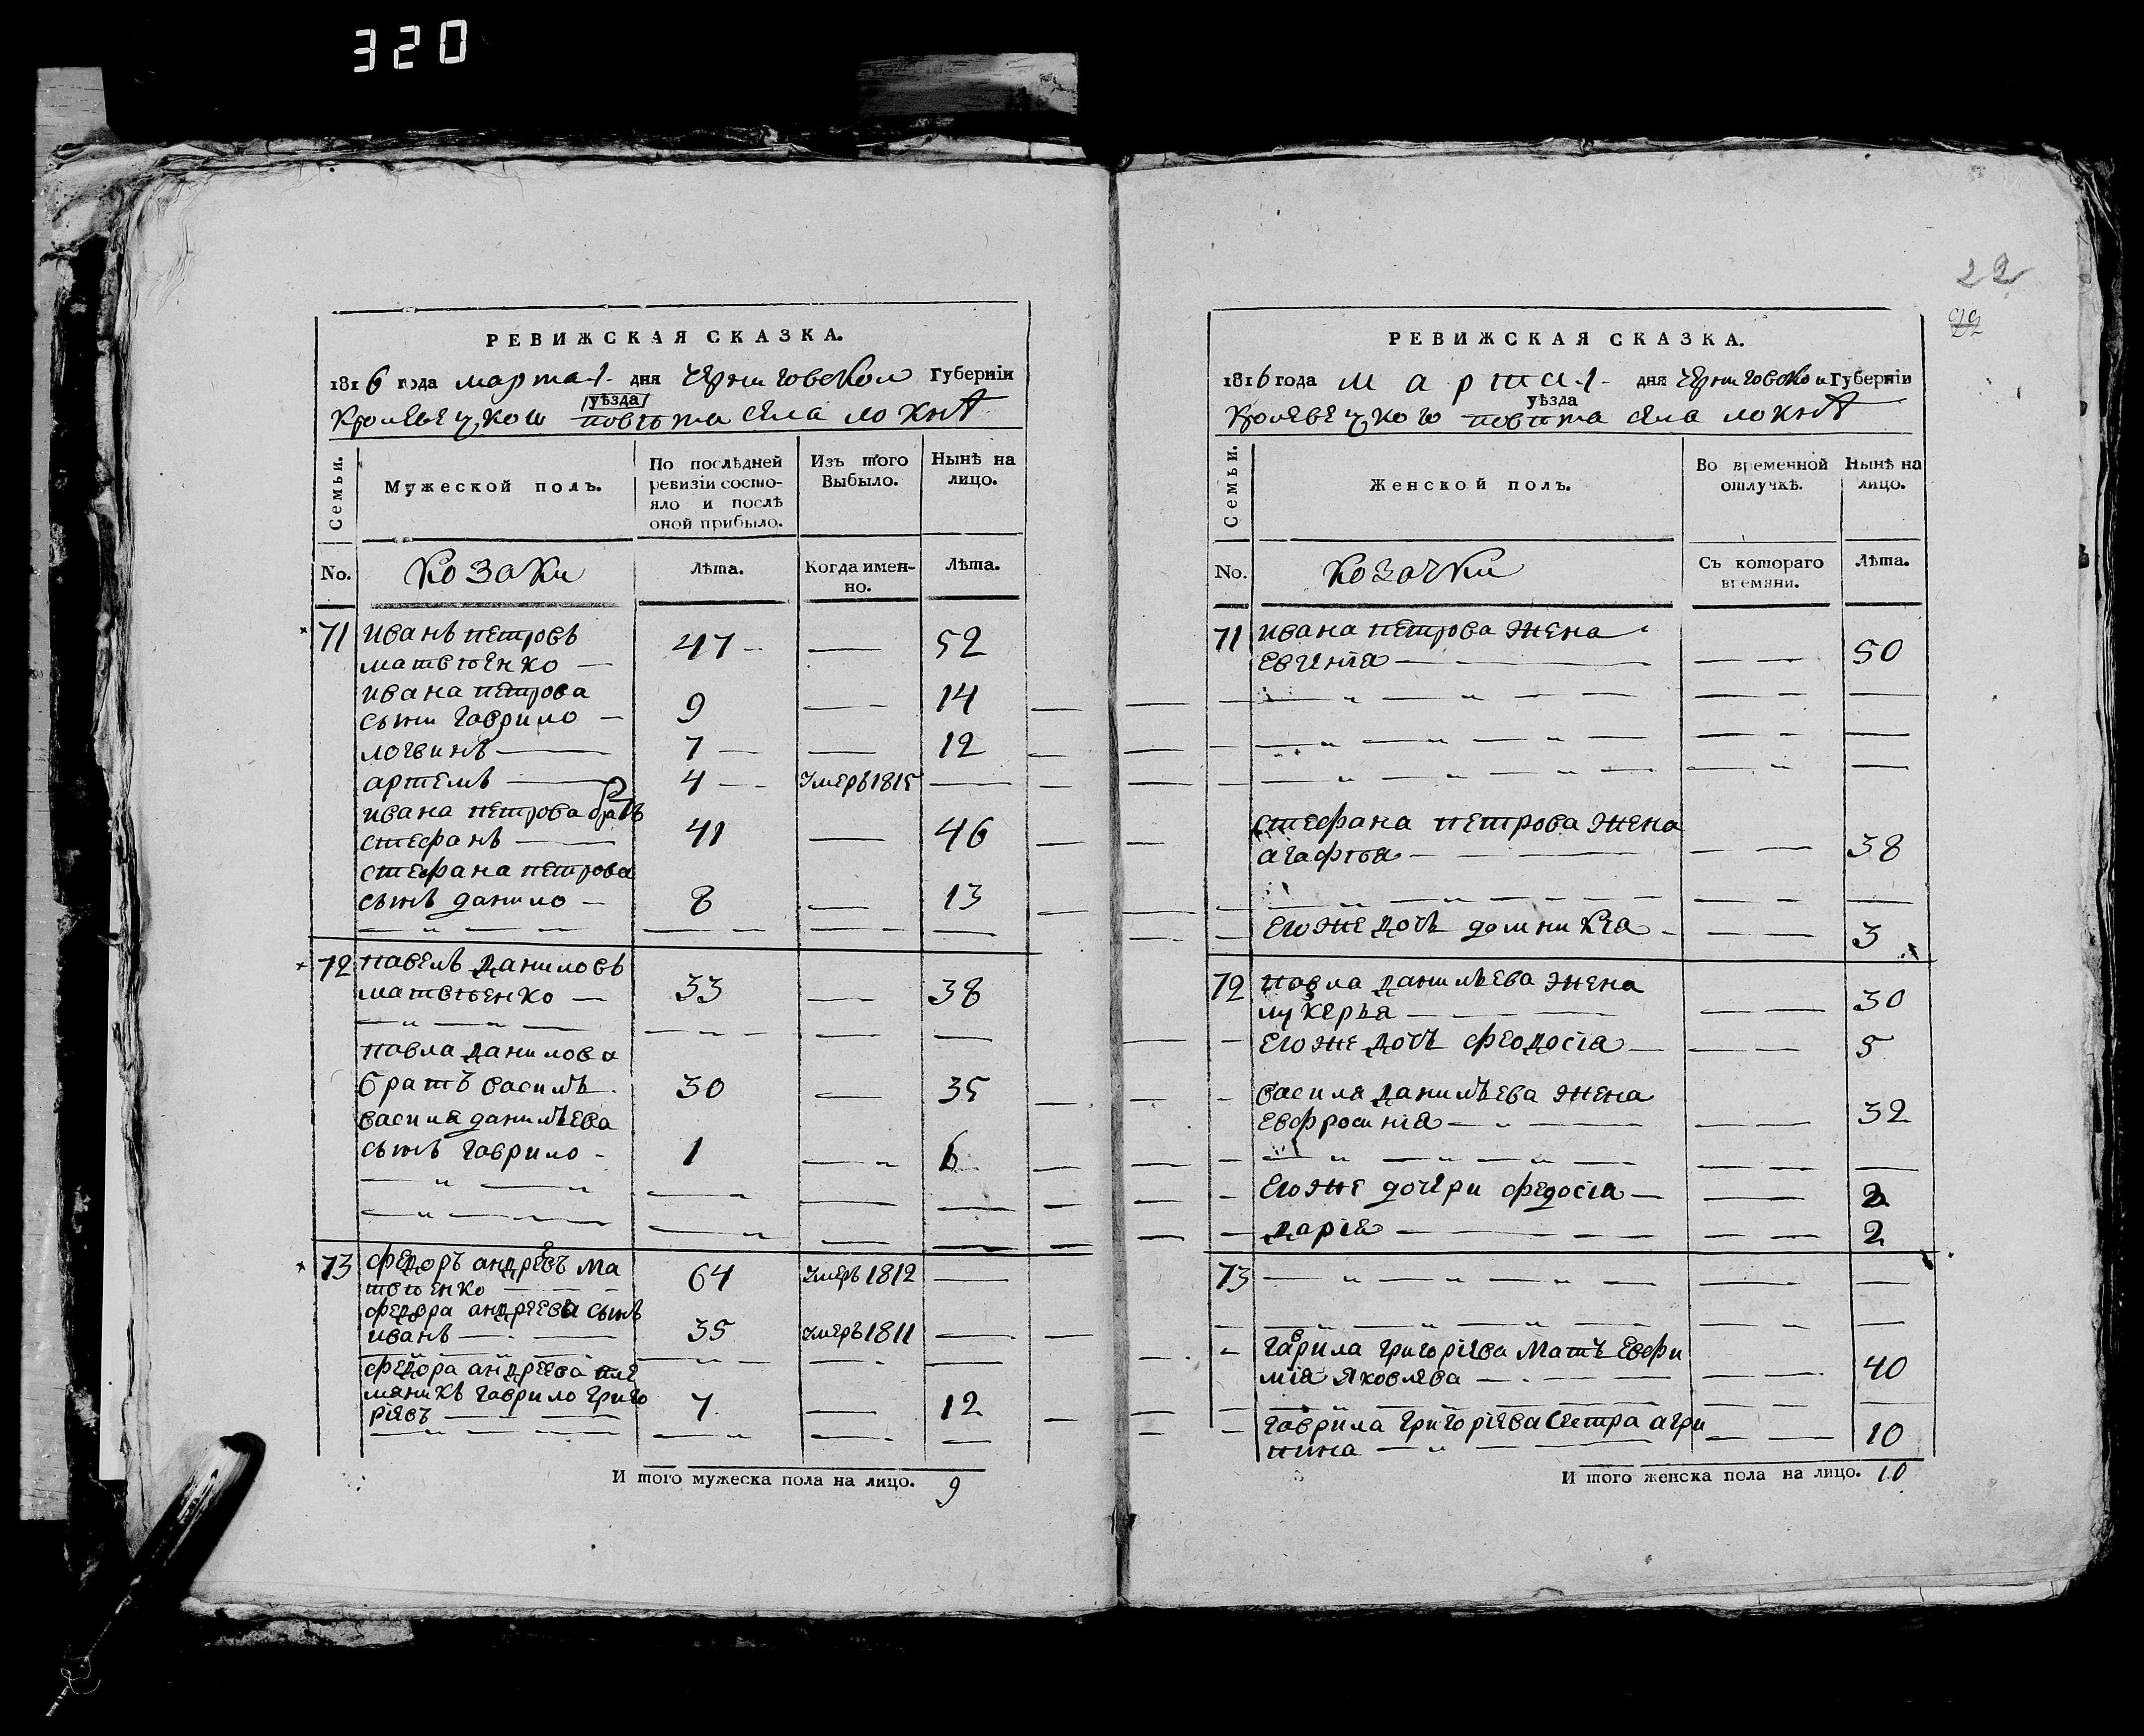 320
РЕВИЖСКАЯ СКАЗКА.
1816 года марта 1 дня черниговской Губерніи
/уѣзда/
Кролевецкого повѣта села локнѣ
Семьи.
Мужеской полъ.
По послѣдней ревизіи состояло и послѣ оной прибыло.
Изъ того Выбыло.
Нынѣ на лицо.
No.
козаки
Лѣта.
Когда именно.
Лѣта.
71 иванъ петровъ
матвѣенко — 47 — 52
ивана петрова
сыни гаврило — 9 — 14
логвинъ — 7 — 12
артемъ — 4 — умеръ 1815 —
ивана петрова братъ
стефанъ — 41 — 46
стефана петрова
сынъ данило — 8 — 13
72 павелъ даниловъ
матвѣенко — 33 — 38
павла данилова
братъ василь 30 — 35
василя данильева
сынъ гаврило - 1 — 6
73 федоръ андреевъ ма
твѣенко — 64 умеръ 1812 —
федора андреева сынъ
иванъ — 35 умеръ 1811 —
федора андреева пле
мяникъ гаврило григо
ріевъ — 7 — 12
И того мужеска пола на лицо. 9
22
22
РЕВИЖСКАЯ СКАЗКА.
1816 года марта 1 дня черниговской Губерніи
уѣзда
Кролевецкого повѣта села локнѣ
Семьи.
Женской полъ.
Во временной отлучкѣ.
Нынѣ на лицо.
No.
козачки
Съ котораго времяни.
Лѣта.
71 ивана петрова жена
евгинія — 50
стефана петрова жена
агафія — 38
его же дочь домникія — 3
72 павла данильева жена
лукерья — 30
его же дочь феодосія — 5
василя данильева жена
евфросинія — 32
его же дочери федосія — 2
дарія — 2
73
гаврила григоріева мать евфи
мія яковлева — 40
гаврила григоріева сестра агри
пина — 10
И того женска пола на лицо. 10